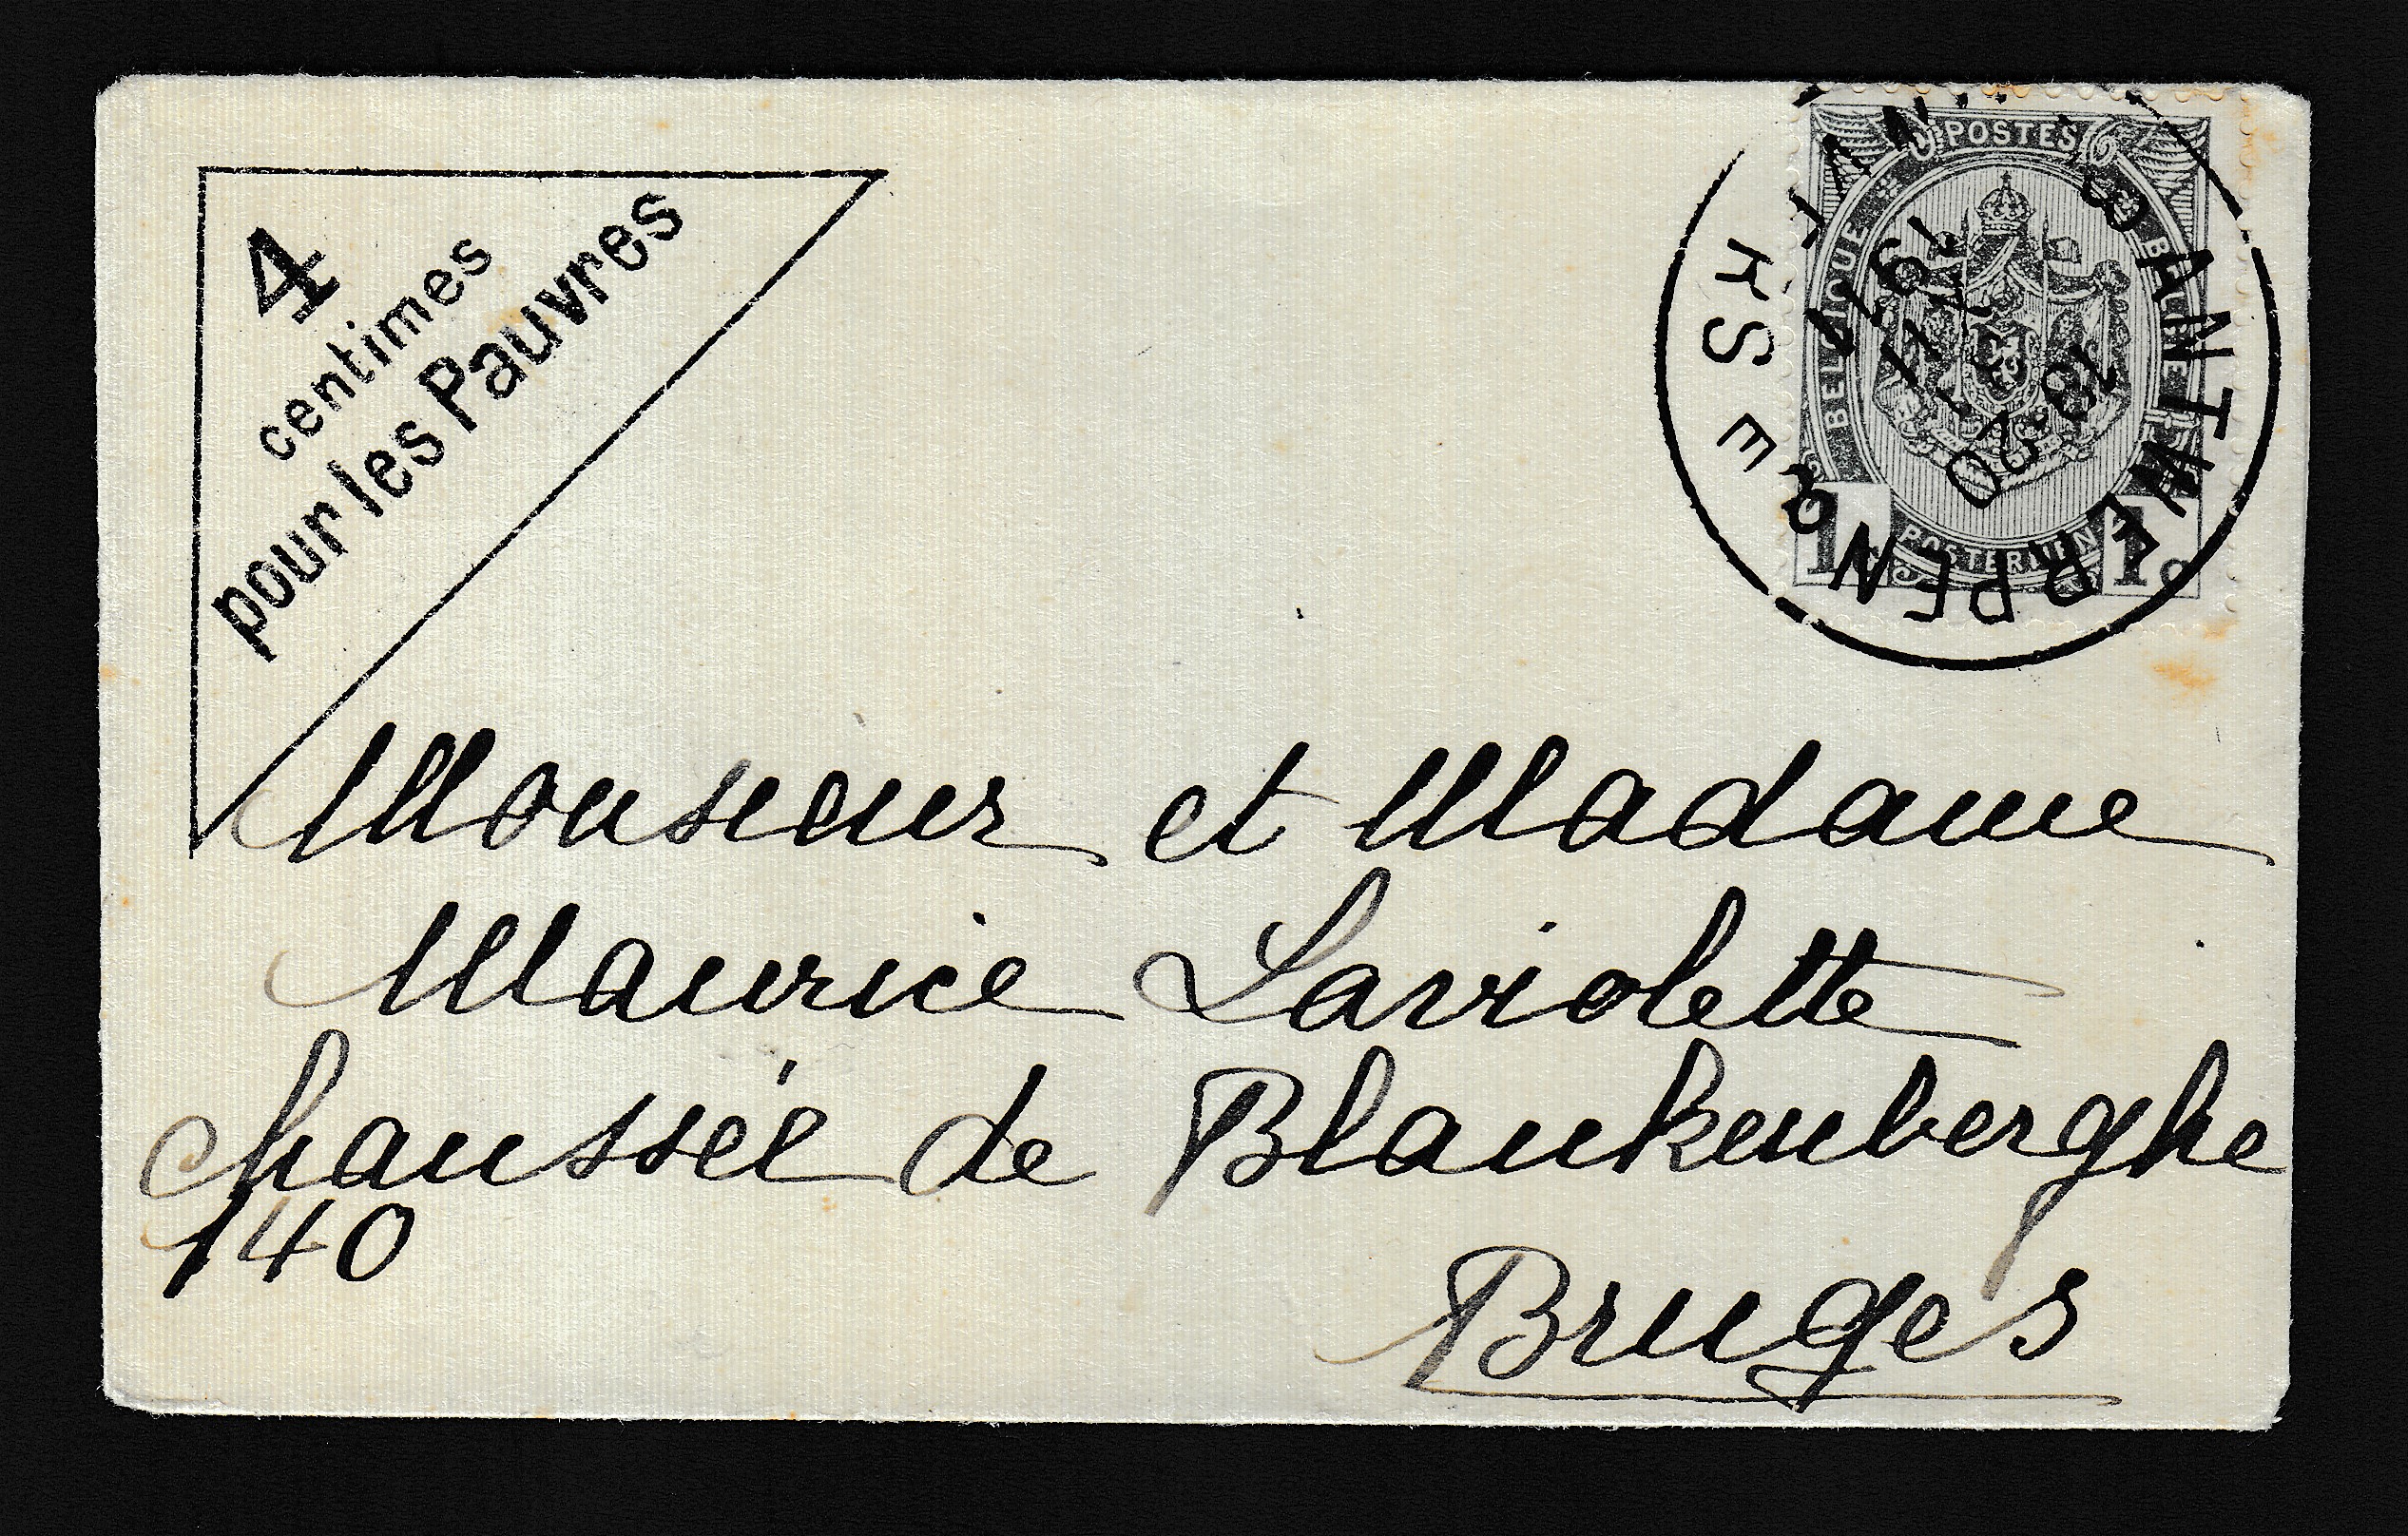 4
centimes
pour les Pauvres
POSTES
BELGIQUE
BELGIË
POSTERIJEN
1c
ANTWERPEN
18-20
1911
Monsieur et Madame
Maurice Laviolette
Chaussée de Blankenberghe
140
Bruges